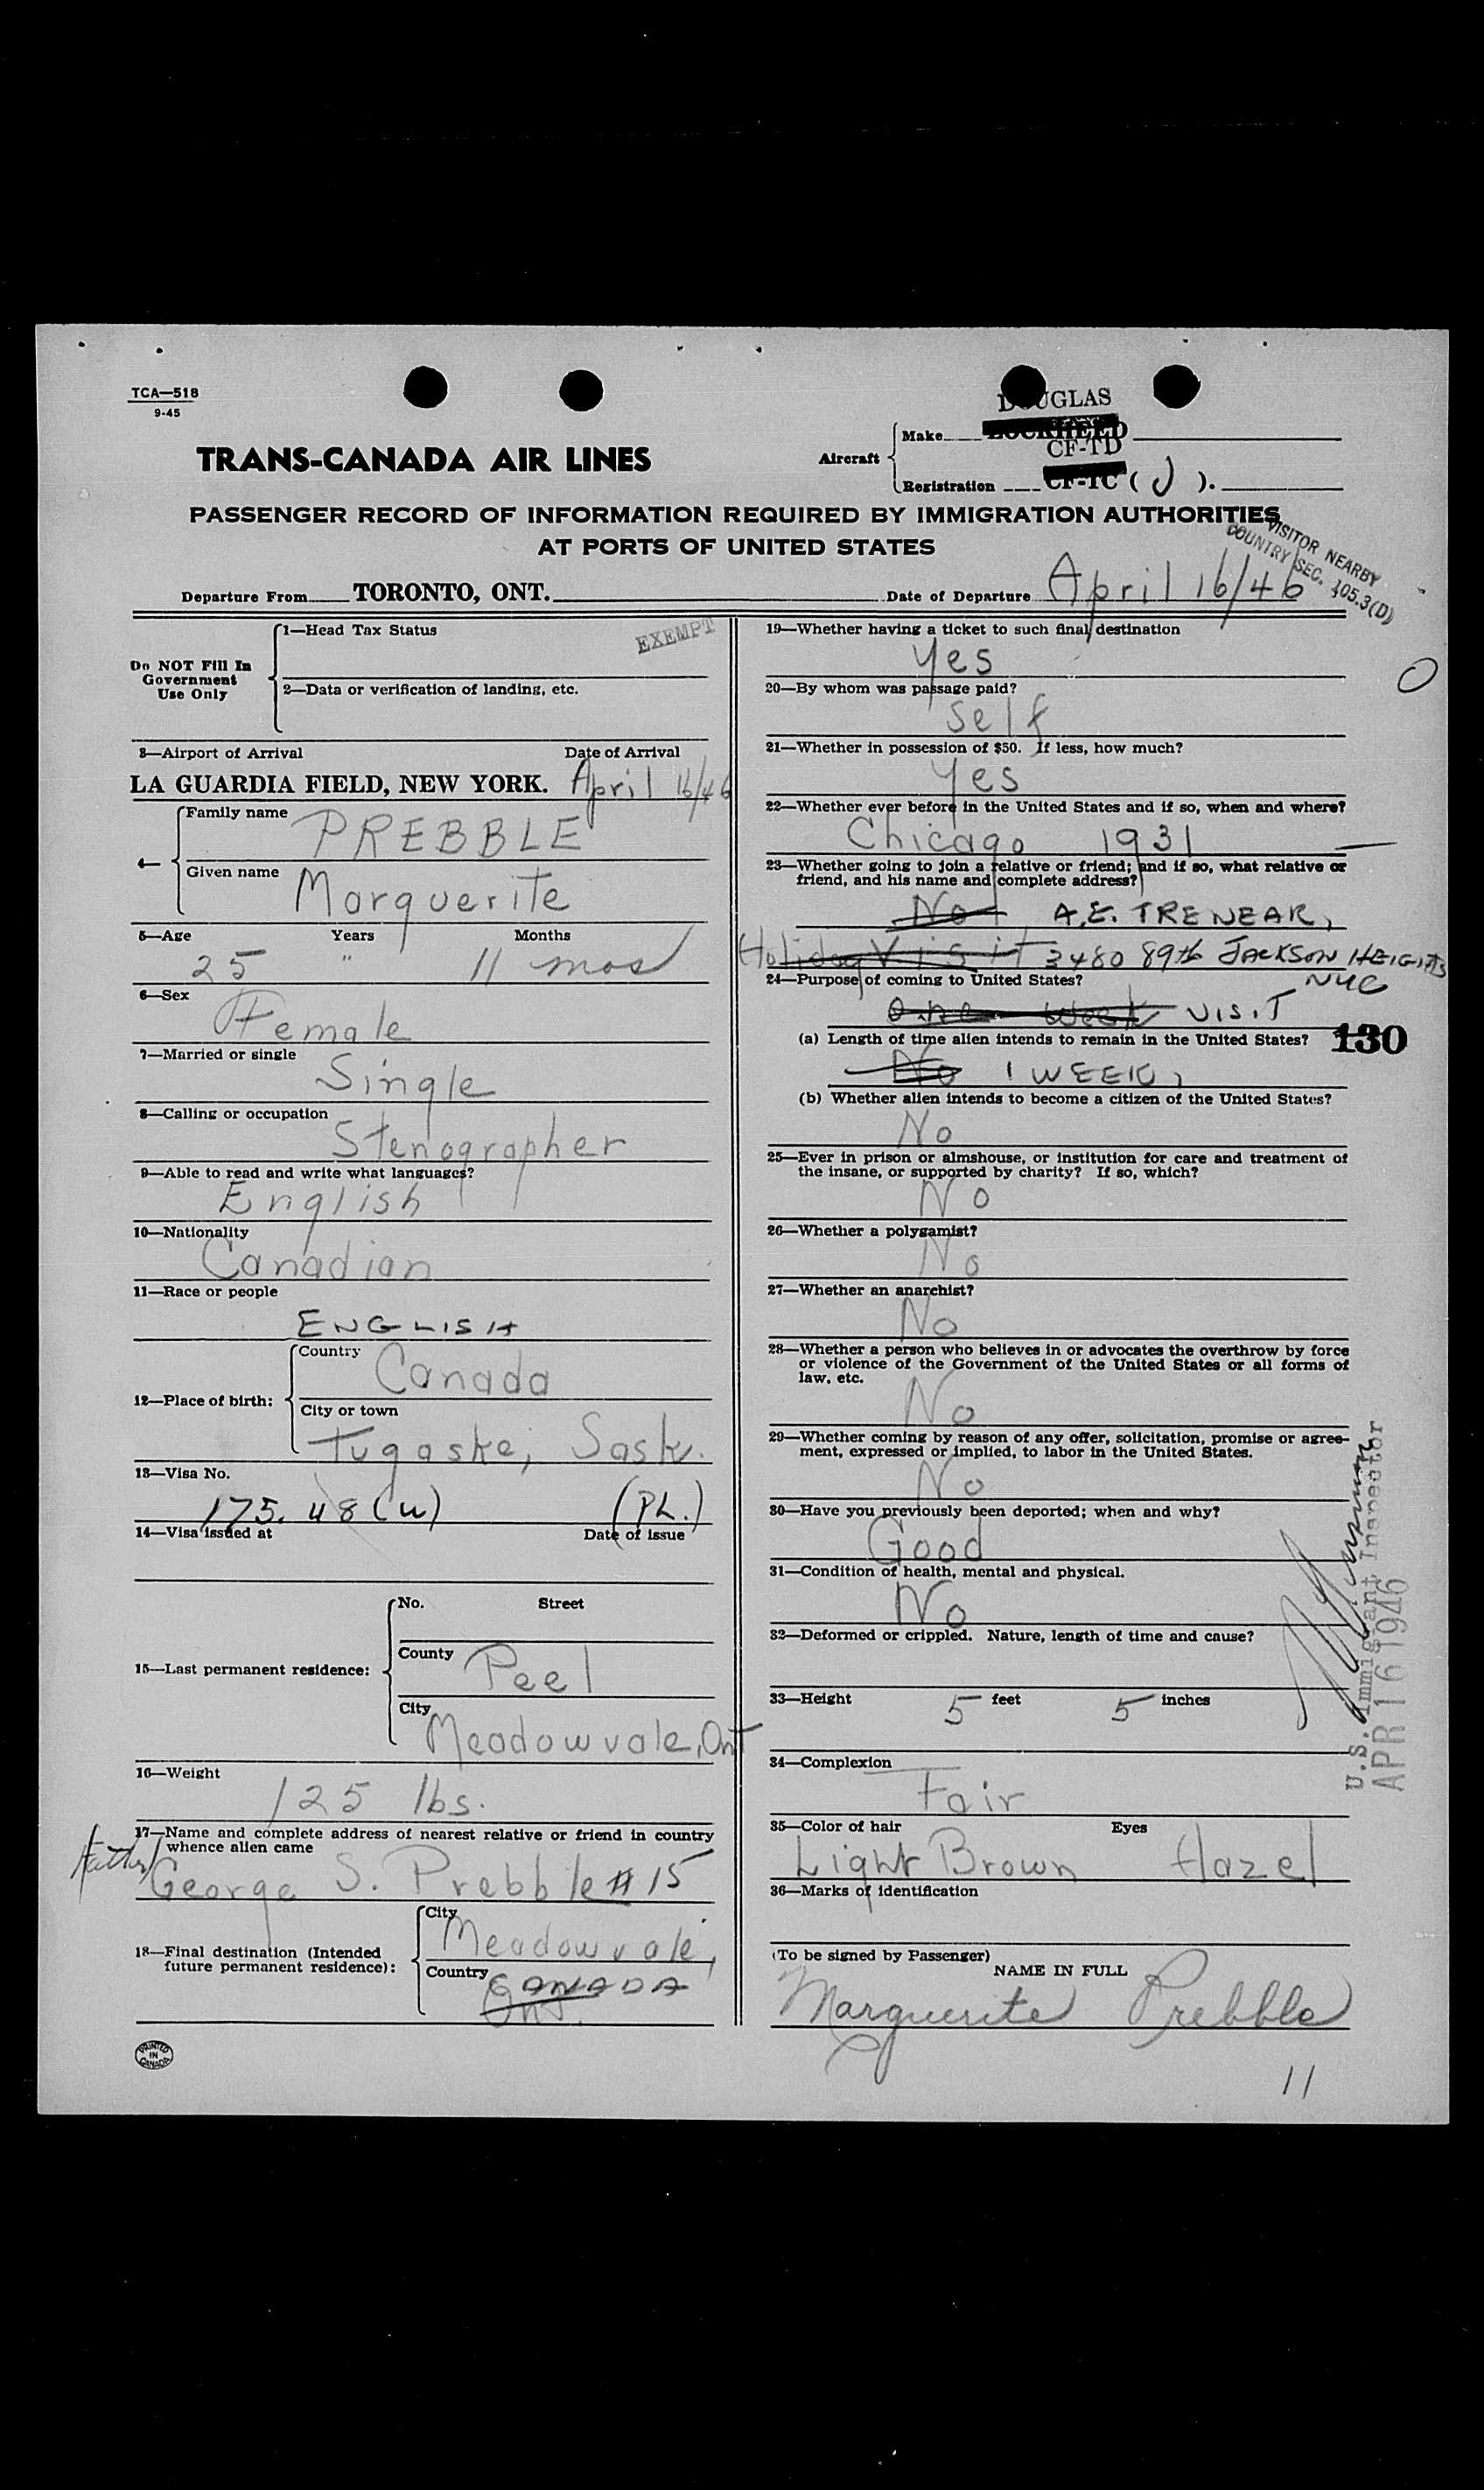 TCA—518
9-45
DOUGLAS
Aircraft
Make LOCKHEED
CF-TD
Registration CF-TC ( J ).
TRANS-CANADA AIR LINES
PASSENGER RECORD OF INFORMATION REQUIRED BY IMMIGRATION AUTHORITIES
AT PORTS OF UNITED STATES
VISITOR NEARBY
COUNTRY SEC. 105.3(D)
Departure From TORONTO, ONT.
Date of Departure April 16/46
Do NOT Fill In
Government
Use Only
1—Head Tax Status
EXEMPT
2—Data or verification of landing, etc.
3—Airport of Arrival Date of Arrival
LA GUARDIA FIELD, NEW YORK. April 16/46
4—
Family name
PREBBLE
Given name
Marguerite
5—Age Years Months
25 " 11 mos
6—Sex
Female
7—Married or single
Single
8—Calling or occupation
Stenographer
9—Able to read and write what languages?
English
10—Nationality
Canadian
11—Race or people
ENGLISH
12—Place of birth:
Country
Canada
City or town
Tugaske, Sask.
13—Visa No.
175.48 (W) (PL.)
14—Visa issued at Date of issue
15—Last permanent residence:
No. Street
County
Peel
City
Meadowvale, Ont
16—Weight
125 lbs.
17—Name and complete address of nearest relative or friend in country
whence alien came
Father George S. Prebble #15
18—Final destination (Intended
future permanent residence):
City
Meadowvale,
Country
CANADA
Ont.
PRINTED
IN
CANADA
19—Whether having a ticket to such final destination
Yes
20—By whom was passage paid?
Self
21—Whether in possession of $50. If less, how much?
Yes
22—Whether ever before in the United States and if so, when and where?
Chicago 1931 —
23—Whether going to join a relative or friend; and if so, what relative or
friend, and his name and complete address?
No A.E. TRENEAR,
Holiday Visit 3480 89th JACKSON HEIGHTS
NYC
24—Purpose of coming to United States?
One Week VISIT
(a) Length of time alien intends to remain in the United States?
130
No 1 WEEK,
(b) Whether alien intends to become a citizen of the United States?
No
25—Ever in prison or almshouse, or institution for care and treatment of
the insane, or supported by charity? If so, which?
No
26—Whether a polygamist?
No
27—Whether an anarchist?
No
28—Whether a person who believes in or advocates the overthrow by force
or violence of the Government of the United States or all forms of
law, etc.
No
29—Whether coming by reason of any offer, solicitation, promise or agree-
ment, expressed or implied, to labor in the United States.
No
30—Have you previously been deported; when and why?
Good
31—Condition of health, mental and physical.
No
32—Deformed or crippled. Nature, length of time and cause?
33—Height 5 feet 5 inches
34—Complexion
Fair
35—Color of hair Eyes
Light Brown Hazel
36—Marks of identification
(To be signed by Passenger)
NAME IN FULL
Marguerite Prebble
U.S. Immigrant Inspector
APR 16 1946
11